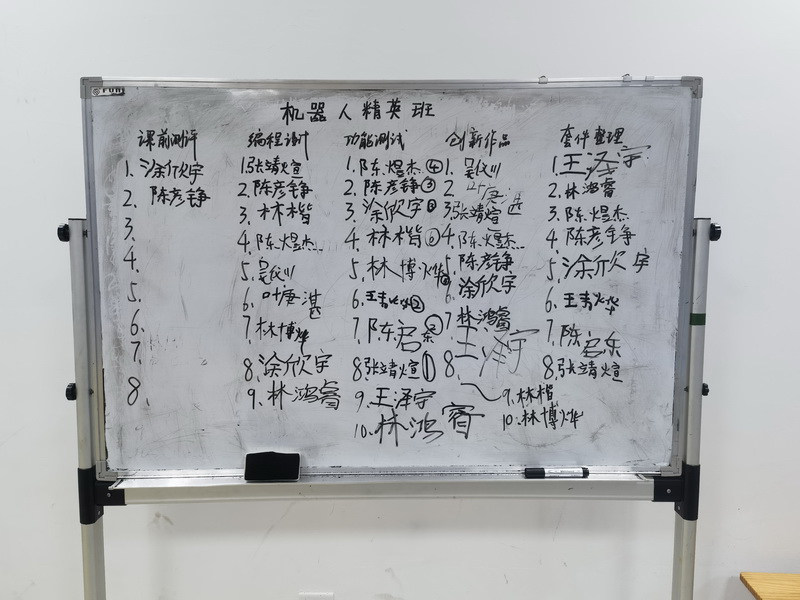 机器人精英班
课前测评
1. 涂欣宇
2. 陈彦铮
3.
4.
5.
6.
7.
8.
编程设计
1. 张靖煊
2. 陈彦铮
3. 林楷
4. 陈煜杰
5. 吴仪川
6. 叶唐湛
7. 林博烨
8. 涂欣宇
9. 林鸿睿
功能测试
1. 陈煜杰④
2. 陈彦铮③
3. 涂欣宇
4. 林楷
5. 林博烨
6. 王青
7. 陈启
8. 张靖煊①
9. 王泽宇
10. 林鸿睿
创新作品
1. 吴仪川
2 叶唐湛
3. 张靖煊
4. 陈煜杰
5. 陈彦铮
6. 涂欣宇
7 林鸿睿
8. 王泽宇
9. 林楷
10. 林博烨
套件整理
1. 王泽宇
2. 林鸿睿
3. 陈煜杰
4. 陈彦铮
5. 涂欣宇
6. 王青烨
7. 陈启乐
8. 张靖煊